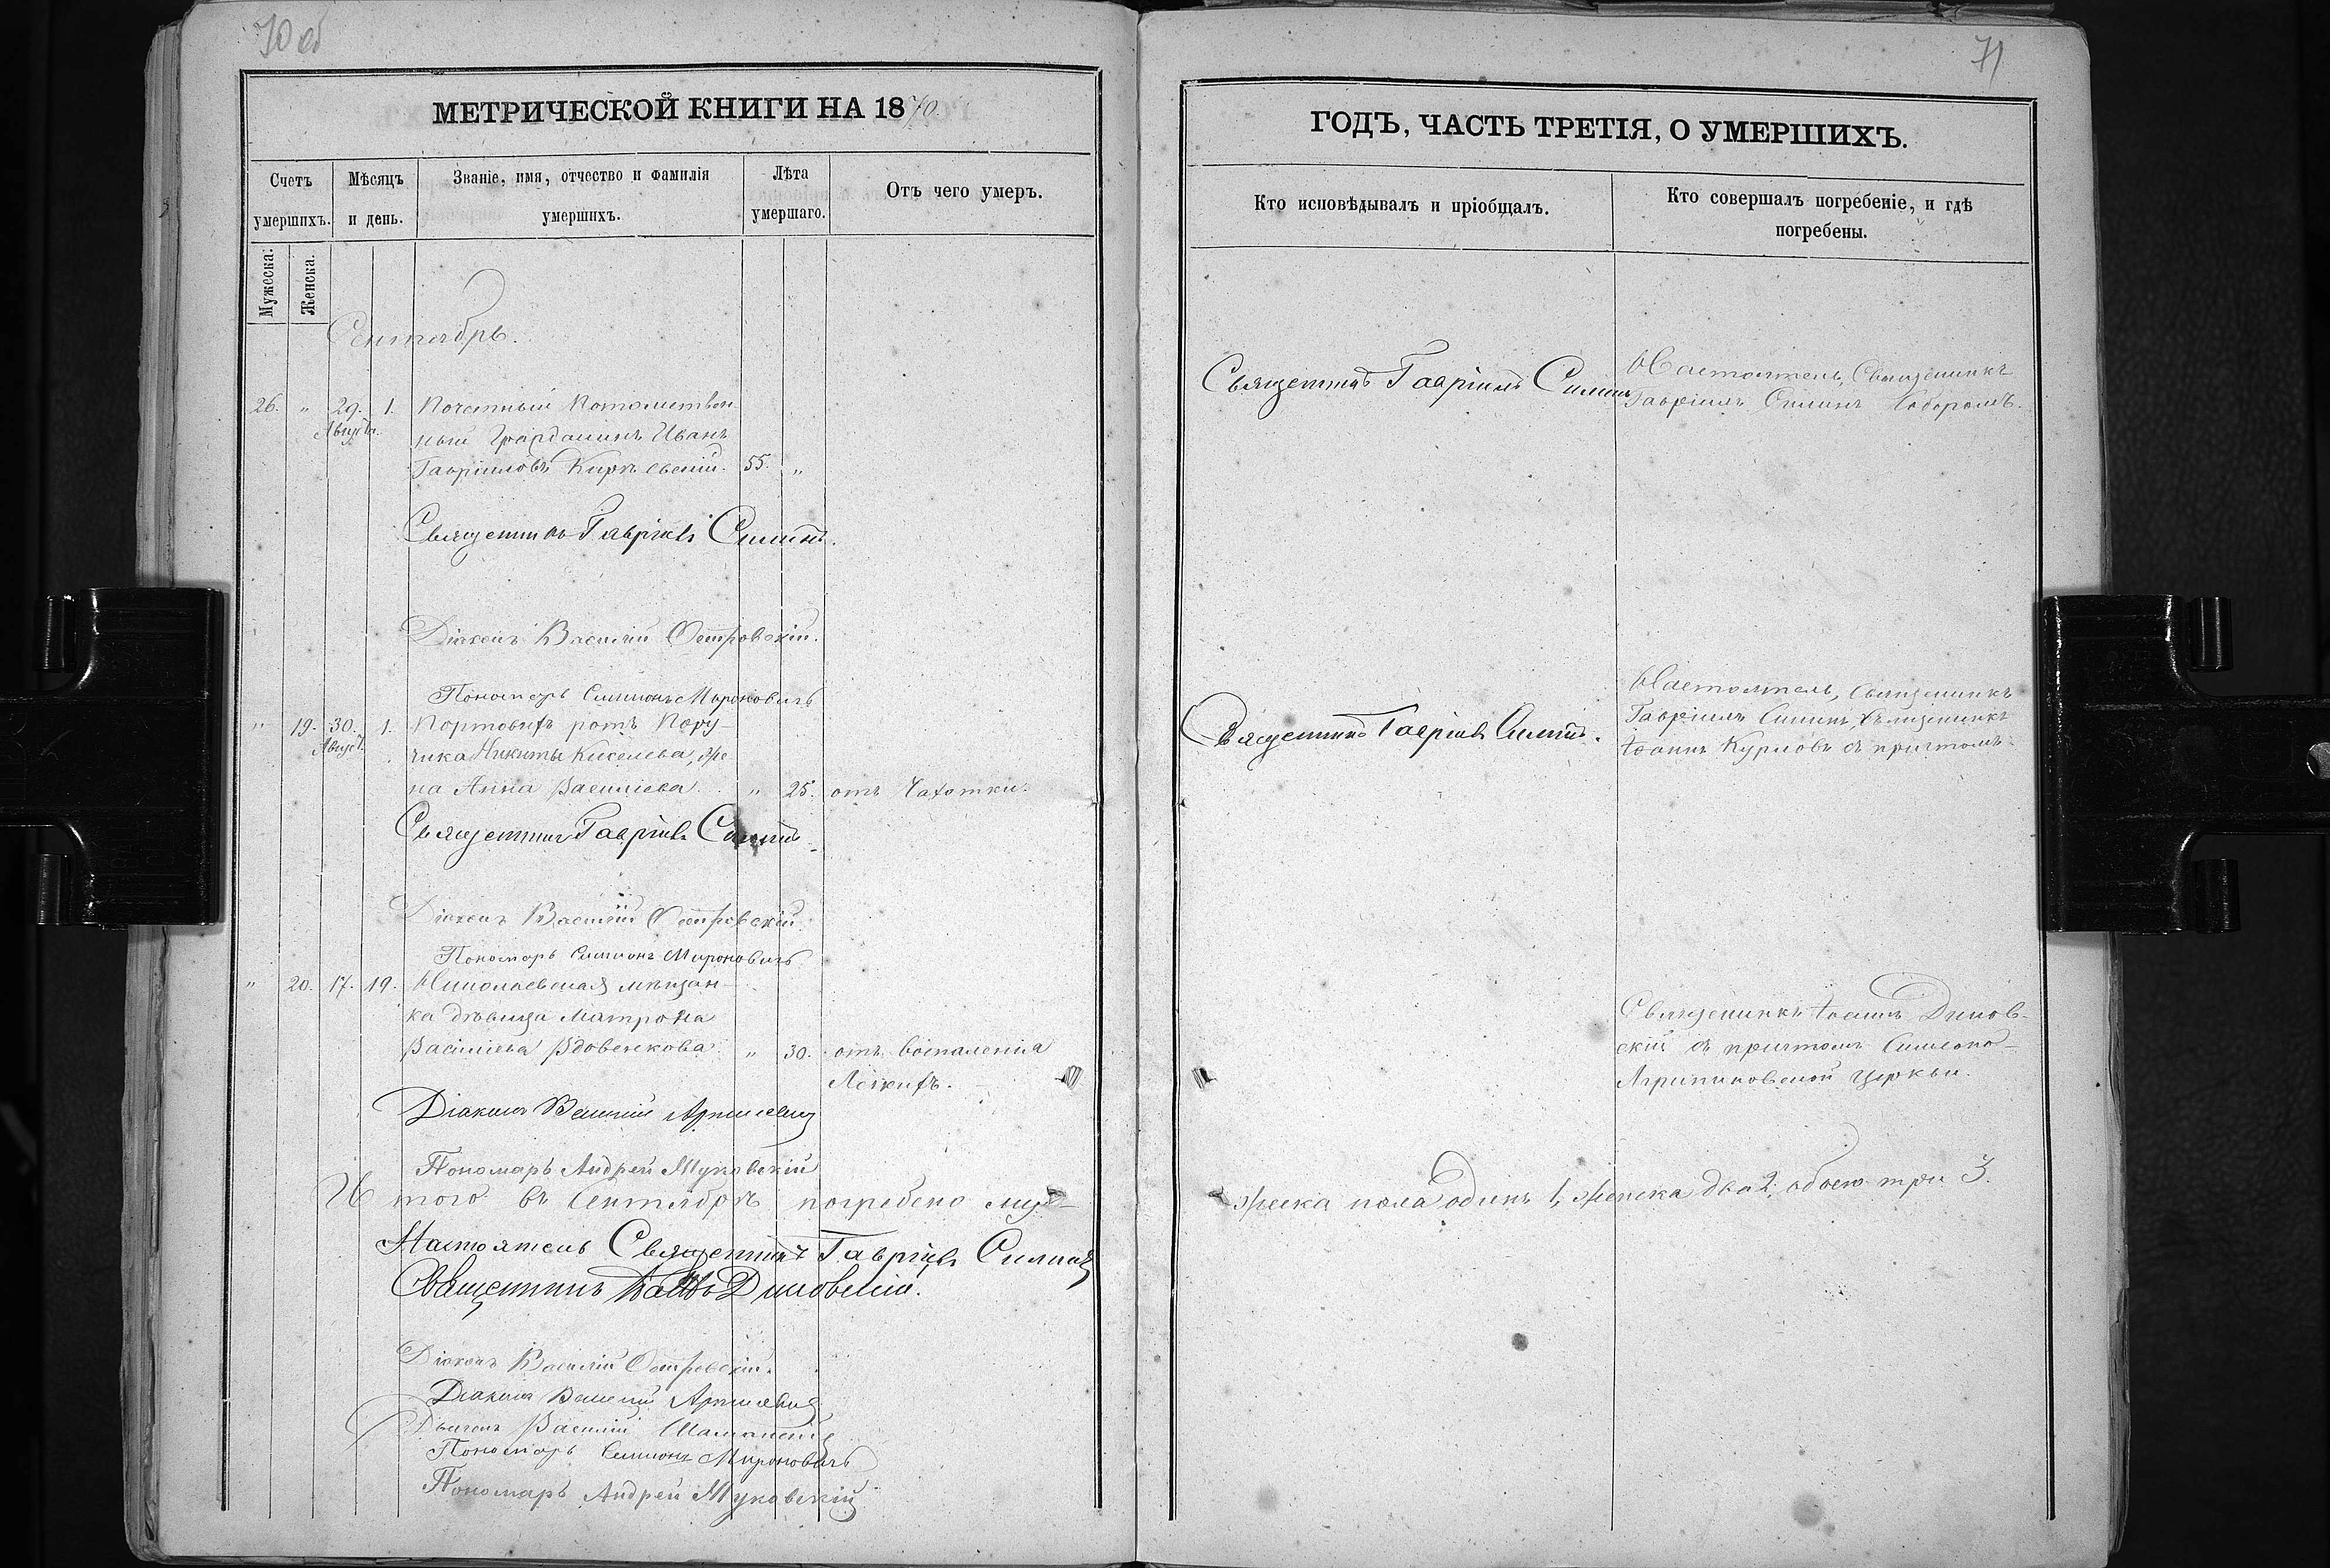 70 об
МЕТРИЧЕСКОЙ КНИГИ НА 1870.
Счетъ умершихъ.
Мужеска:
Женска.
Мѣсяцъ и день.
Званіе, имя, отчество и фамилія умершихъ.
Лѣта умершаго.
Отъ чего умеръ.
Сентябрь.
26. " 29. 1. Почетный Потомствен-
Августа. ный Гражданинъ Иванъ
Гавріиловъ 55. "
Священникъ Гавріилъ Силинъ.
Діаконъ Василій Островскій.
Пономарь Симеонъ Мироновичъ
" 19. 30. 1. Портовыхъ ротъ Пору-
Август. чика Никиты Киселева, же-
на Анна Василіева. " 25. отъ Чахотки.
Священникъ Гавріилъ Силинъ
Діаконъ Василій Островскій.
Пономарь Симеонъ Мироновичъ
" 20. 17. 19. Николаевская мѣщан-
ка дѣвица Матрона
Василіева Вдовенкова " 30. отъ воспаленія
Легкихъ.
Діаконъ Василій
Пономарь Андрей Муковскій
Итого въ Сентябрѣ погребено му-
Настоятель Священникъ Гавріилъ Силинъ
Священникъ Диковскій.
Діаконъ Василій Островскій.
Діаконъ Василій
Дьячекъ Василій
Пономарь Симеонъ Мироновичъ
Пономарь Андрей Муковскій
71
ГОДЪ, ЧАСТЬ ТРЕТІЯ, О УМЕРШИХЪ.
Кто исповѣдывалъ и пріобщалъ.
Кто совершалъ погребеніе, и гдѣ
погребены.
Священникъ Гавріилъ Силинъ
Настоятель, Священникъ
Гавріилъ Силинъ Соборомъ.
Священникъ Гавріилъ Силинъ.
Настоятель, Священникъ
Гавріилъ Силинъ, Священникъ
Іоаннъ Курловъ съ причтомъ.
Священникъ Іоаннъ Диков-
скій съ причтомъ Симеоно-
Агрипиновской церкви.
жеска пола одинъ 1, женска два 2, обоего три 3.